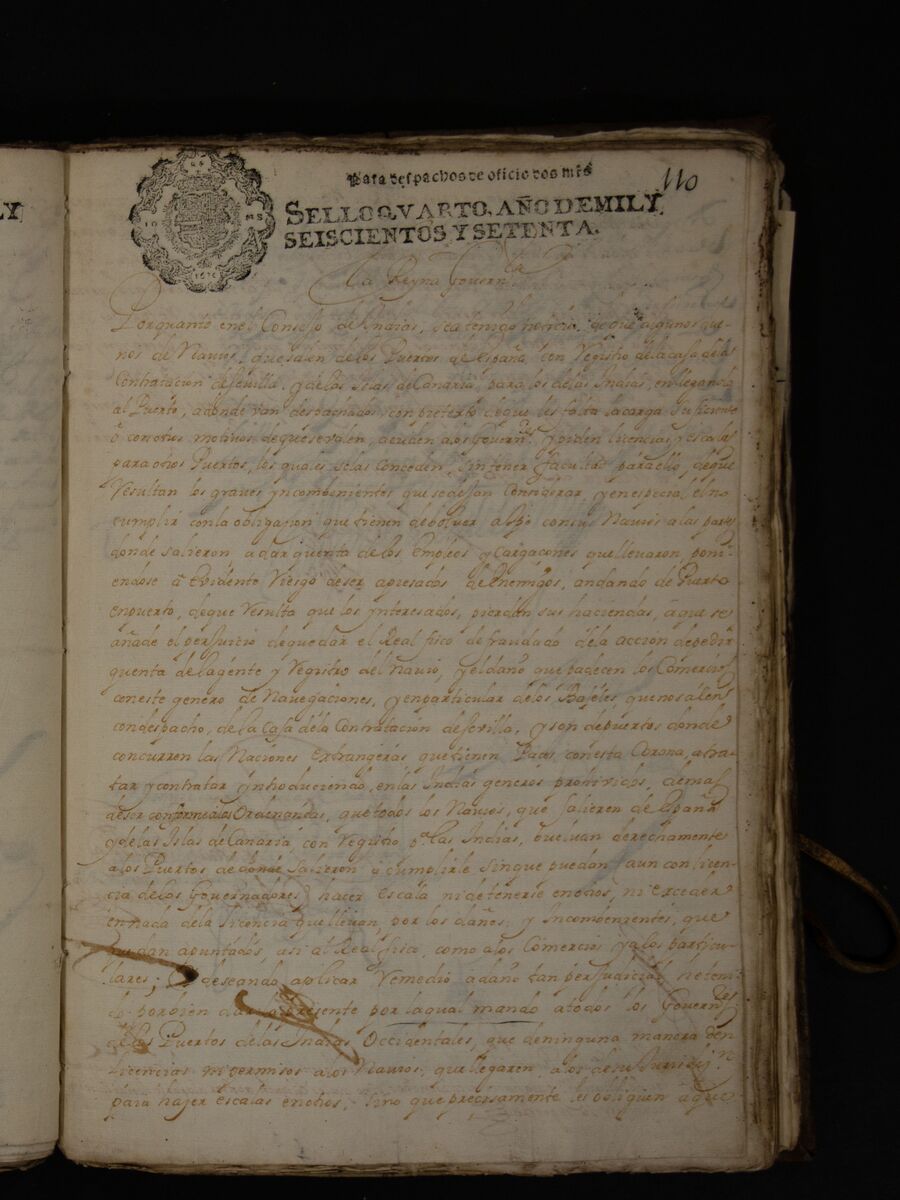 Para despachos de oficio dos mrs
110
SELLO QVARTO, AÑO DE MIL Y
SEISCIENTOS Y SETENTA.
1670
La Reyna Govern.ra
Porquanto enel Consejo de Indias, sea tenido noticia, de que algunos due-
nos de Navios, que salen de los Puertos de España con Registro dela casa dela
Contratacion de Sevilla, y delas Islas de Canaria, para los delas Indias, en llegando
al Puerto, adonde van despachados, con pretexto de que les falta la carga suficiente
ô con otros motivos de que se valen, acuden alos Govern.res y piden licencias, y escalas
para otros Puertos, los quales selas conceden, sin tener facultad para ello, de que
Resultan los graves ynconbenientes que se dejan Considerar, y en especial el no
cumplir con la obligazion que tienen de bolver a España con sus Navios alas partes
donde salieron a dar quenta de los Empleos y Cargaçones que llevaron, poni-
endose â Evidente Riesgo de ser apresados de Enemigos, andando de Puerto
en puerto, de que Resulta que los ynteresados, pierdan sus haciendas, a que se
añade el perjuicio de quedar el Real fisco defraudado de la accion de pedir
quenta de la gente y Registro del Navio, y el daño que padecen los Comercios
con este genero de Navegaciones, y en particular de los Bajeles, que no salen
con despacho, de la Casa de la Contratacion de Sevilla, y son de puertos donde
concurren las Naciones Extrangeras que tienen Paces con esta Corona, a tra-
tar y contratar yntroduciendo, en las Indias generos prohividos, demas
de ser conforme alas Ordenanzas, que todos los Navios, que salieren de España
y de las Islas de Canaria, con Registro p.a las Indias, buelvan derechamente
a los Puertos de donde salieron y cumplirle sin que puedan aun con licen-
cia de los Governadores, hacer escala ni detenerse en otros, ni exceder
en nada de la licencia que llevan, por los daños, y Incombenientes, que
quedan apuntados, asi al Real fisco, como a los Comercios y a los particu-
lares; Y deseando aplicar Remedio a daño tan perjudicial he teni-
do por bien dar la presente por la qual mando a todos los Govern.res
de los Puertos de las Indias Occidentales, que de ninguna manera den
Licencias ni permisos a los Navios, que llegaren a los de su Jurisdi.n
para hazer escalas en otros, sino que precisamente les obliguen a que